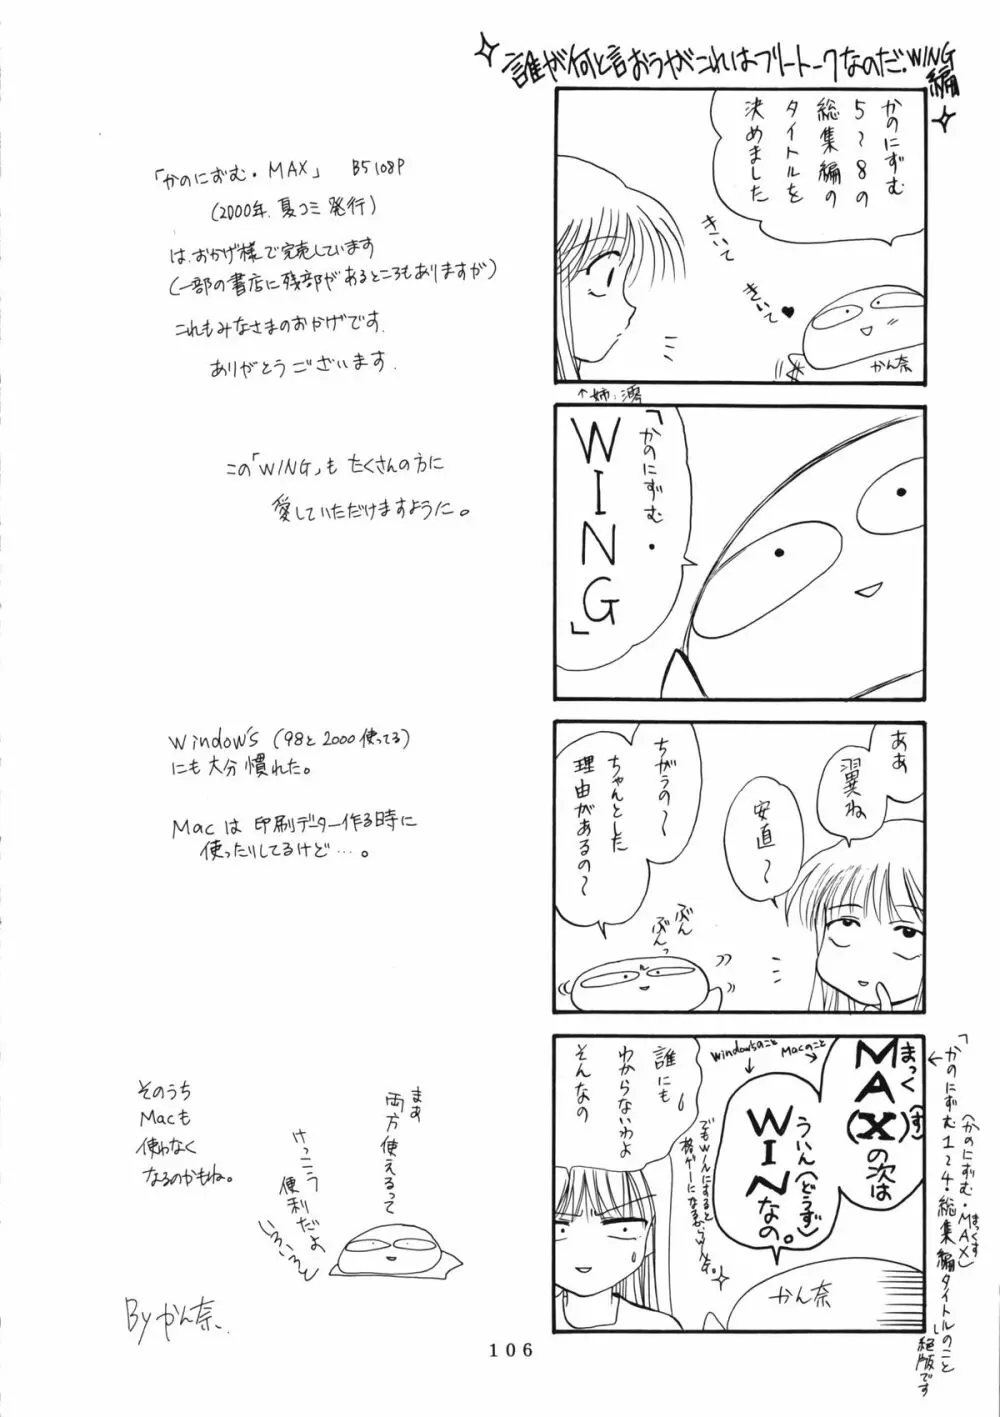 誰が何と言おうがこれはフリートークなのだ。WING編
かのにずむ
5～8の
総集編の
タイトルを
決めました
きいて
きいて♥
かん奈
↑姉:澪
「かのにずむ・
WING」
ああ
翼ね
安直～
ちがうの～
ちゃんとした
理由があるの～
ぶん
ぶんっ
まっく(す)
MA(X)の次は
Macのこと
ういん(どうず)
WINなの。
Windowsのこと
誰にも
わからないわよ
そんなの
でもWINにすると
かん奈
「かのにずむ1～4・総集編タイトルのこと
(かのにずむ・MAX)
まっくす
絶版です
「かのにずむ・MAX」 B5 108P
(2000年.夏コミ発行)
は、おかげ様で完売しています
(一部の書店に残部があるところもありますが)
これもみなさまのおかげです.
ありがとうございます.
この「WING」も たくさんの方に
愛していただけますように。
Window's (98と2000使ってる)
にも大分慣れた。
Macは印刷データー作る時に
使ったりしてるけど…。
そのうち
Macも
使わなく
なるのかもね。
まあ
両方使えるって
けっこう
便利だよ
いろいろと
By かん奈.
106